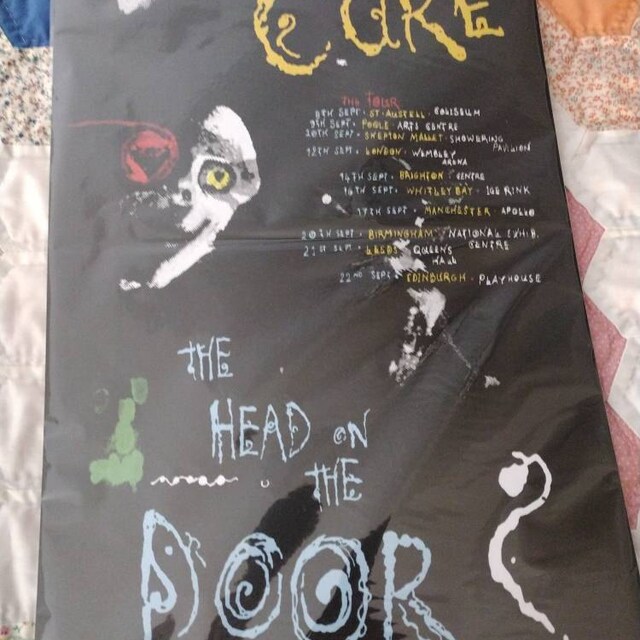 CURE
THE TOUR
8TH SEPT. ST. AUSTELL. COLISEUM
9TH SEPT. POOLE ARTS CENTRE
10TH SEPT. SHEPTON MALLET. SHOWERING PAVILION
12TH SEPT. LONDON. WEMBLEY ARENA
14TH SEPT. BRIGHTON CENTRE
16TH SEPT. WHITLEY BAY. ICE RINK
17TH SEPT. MANCHESTER APOLLO
20TH SEPT. BIRMINGHAM. NATIONAL EXHIB. CENTRE
21ST SEPT. LEEDS QUEENS HALL
22ND SEPT. EDINBURGH. PLAYHOUSE
THE
HEAD ON
THE
DOOR